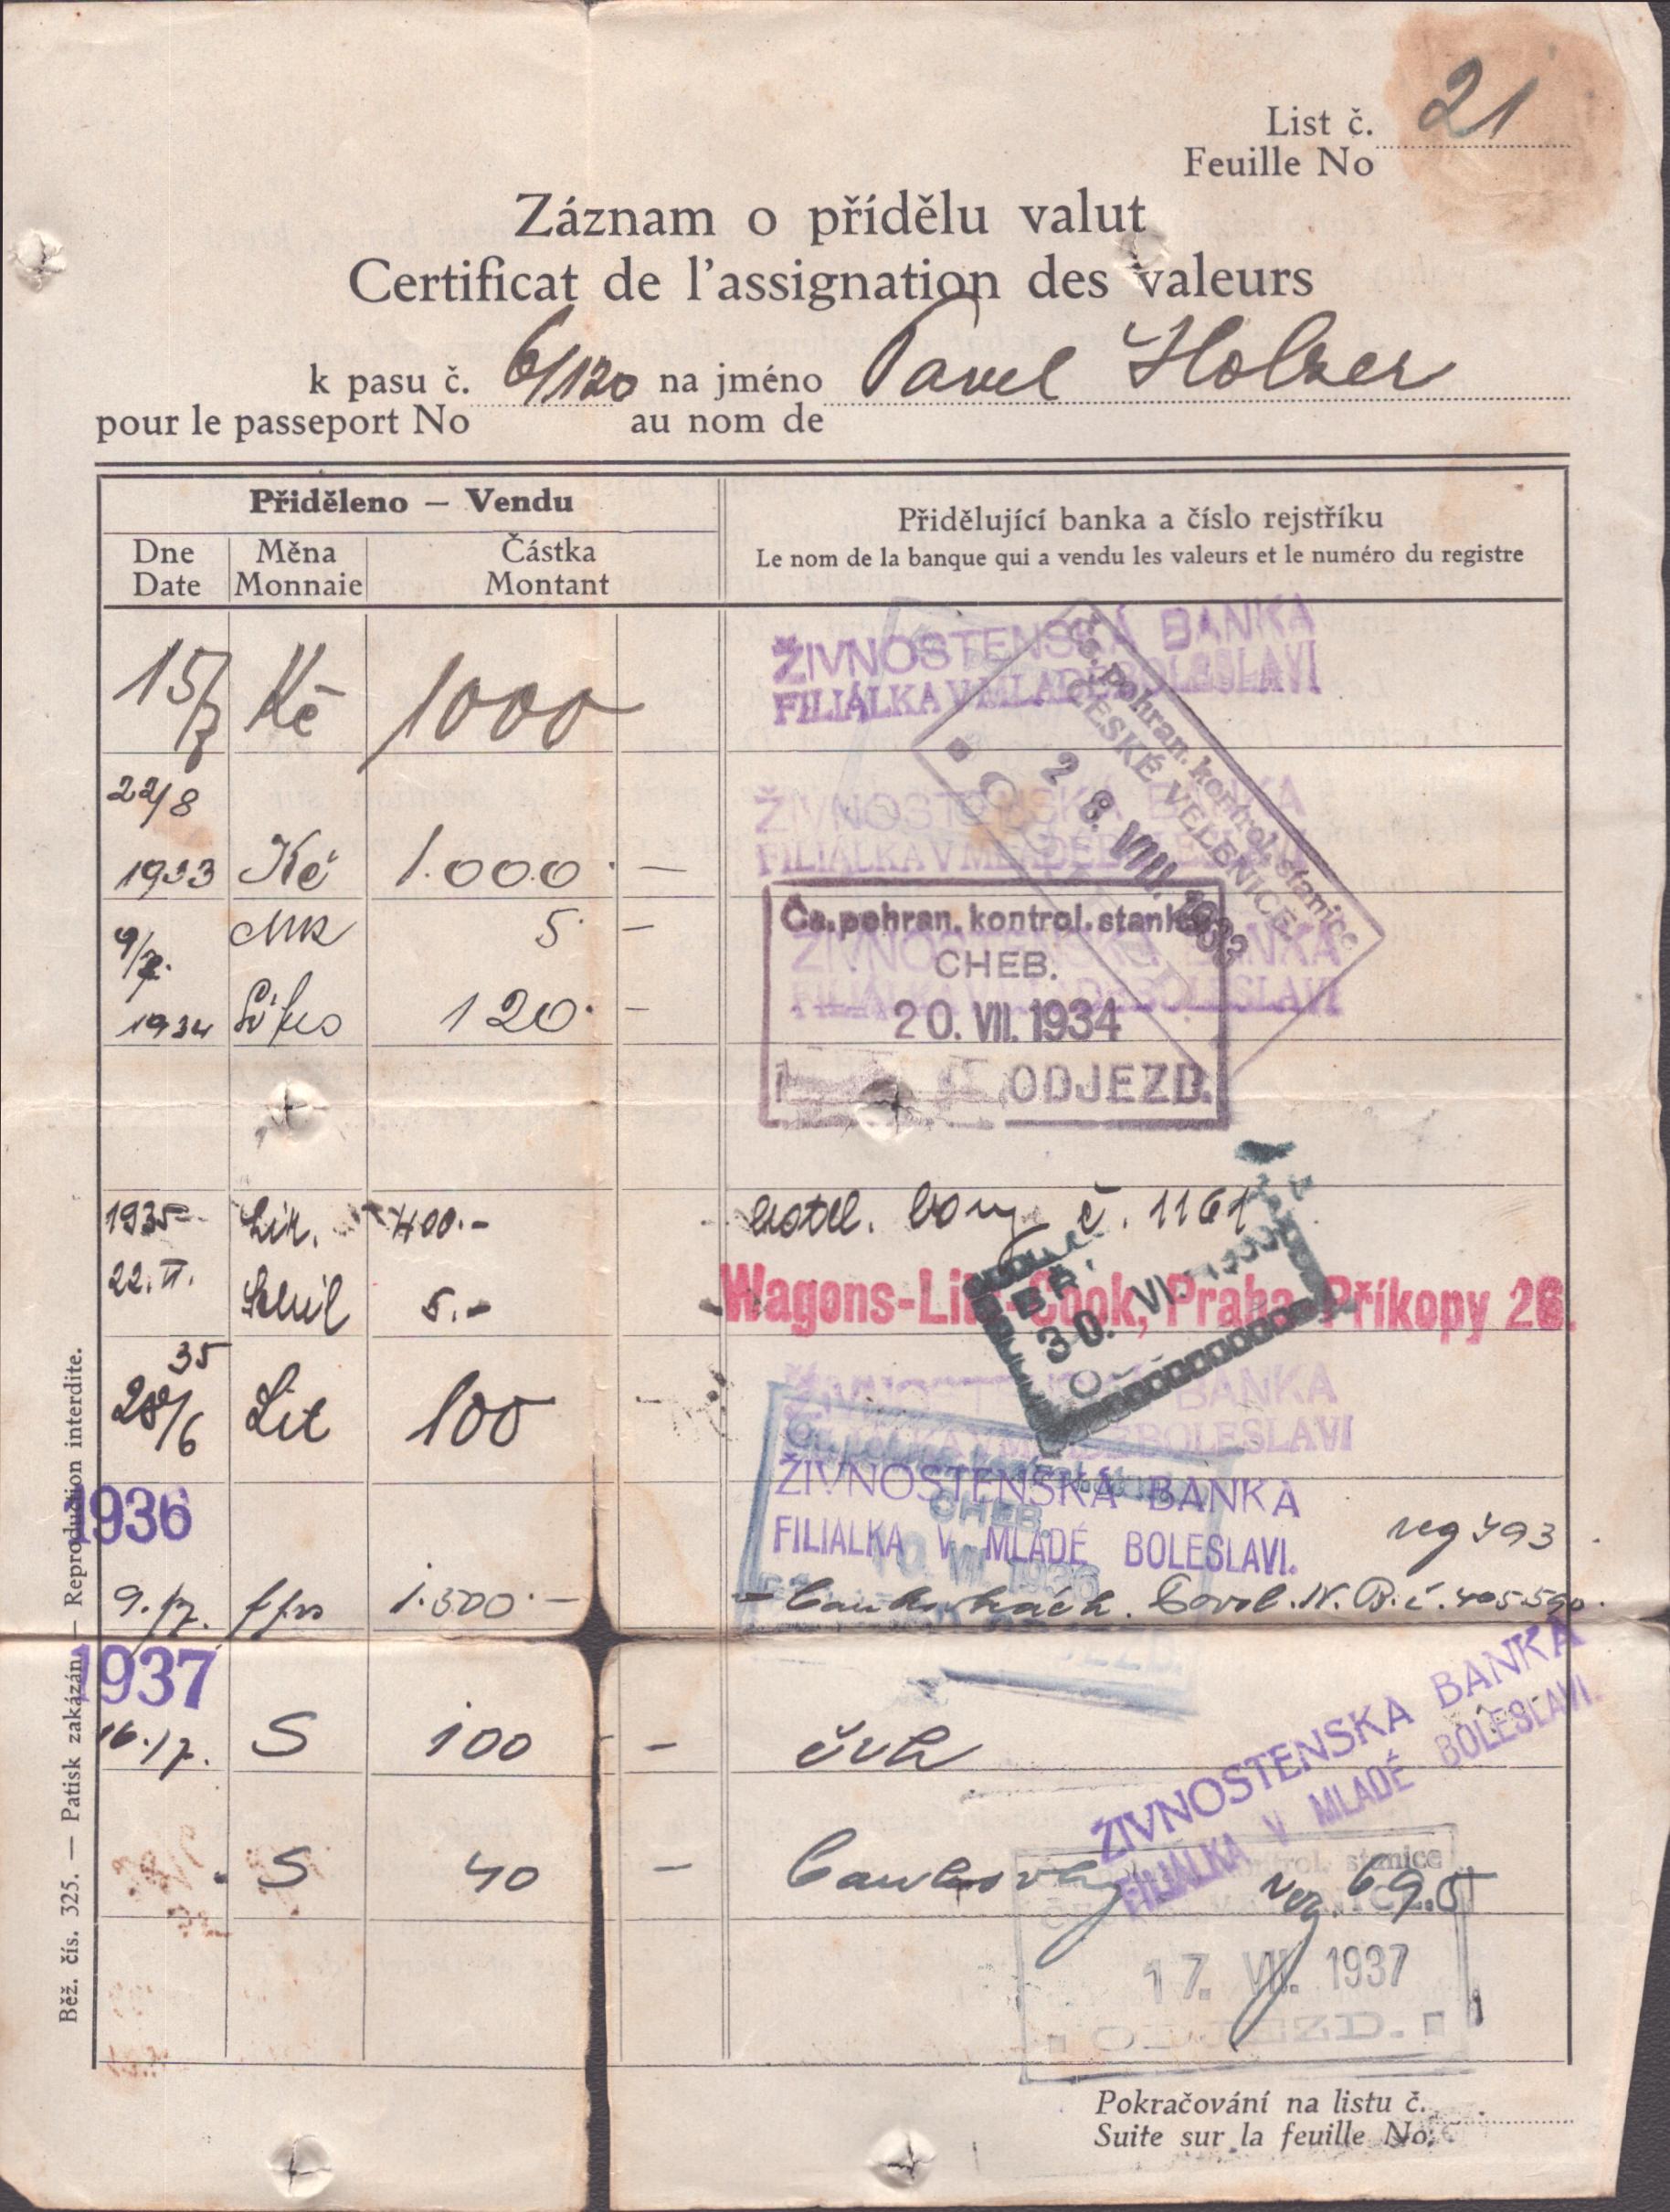 List č. 21
Feuille No
Záznam o přídělu valut
Certificat de l'assignation des valeurs
k pasu č. 6/120 na jméno Pavel Holzer
pour le passeport No au nom de
Přiděleno — Vendu
Přidělující banka a číslo rejstříku
Le nom de la banque qui a vendu les valeurs et le numéro du registre
Dne Měna Částka
Date Monnaie Montant
ŽIVNOSTENSKÁ BANKA
FILIÁLKA V MLADÉ BOLESLAVI
15/7 Kč 1000
Čs. pohran. kontrol. stanice
ČESKÉ VELENICE
28. VIII. 1933
22/8
ŽIVNOSTENSKÁ BANKA
FILIÁLKA V MLADÉ BOLESLAVI
1933 Kč 1.000.—
Mk 5.—
9/7.
1934 120.—
Čs. pohran. kontrol. stanice
ŽIVNOSTENSKÁ BANKA
CHEB.
FILIÁLKA V MLADÉ BOLESLAVI
20. VII. 1934
ODJEZD.
1935 Lir. 400.- hotel. č. 1161
22. VI. 5.-
Wagons-Lits-Cook, Praha Příkopy 26.
30. VI.
35
28/6 Lit 100
ŽIVNOSTENSKÁ BANKA
FILIÁLKA V MLADÉ BOLESLAVI
ŽIVNOSTENSKÁ BANKA
FILIALKA V MLADÉ BOLESLAVI.
CHEB.
10. VII. 1936
1936
reg 493
9./7. ffrs 1.500.—
1937
16./7. S 100 —
ŽIVNOSTENSKÁ BANKA
FILIÁLKA V MLADÉ BOLESLAVI.
S 40 — bankovky reg. 695
kontrol. stanice
17. VII. 1937
ODJEZD.
Pokračování na listu č.
Suite sur la feuille No.
Běž. čís. 325. — Patisk zakázán. — Reproduction interdite.